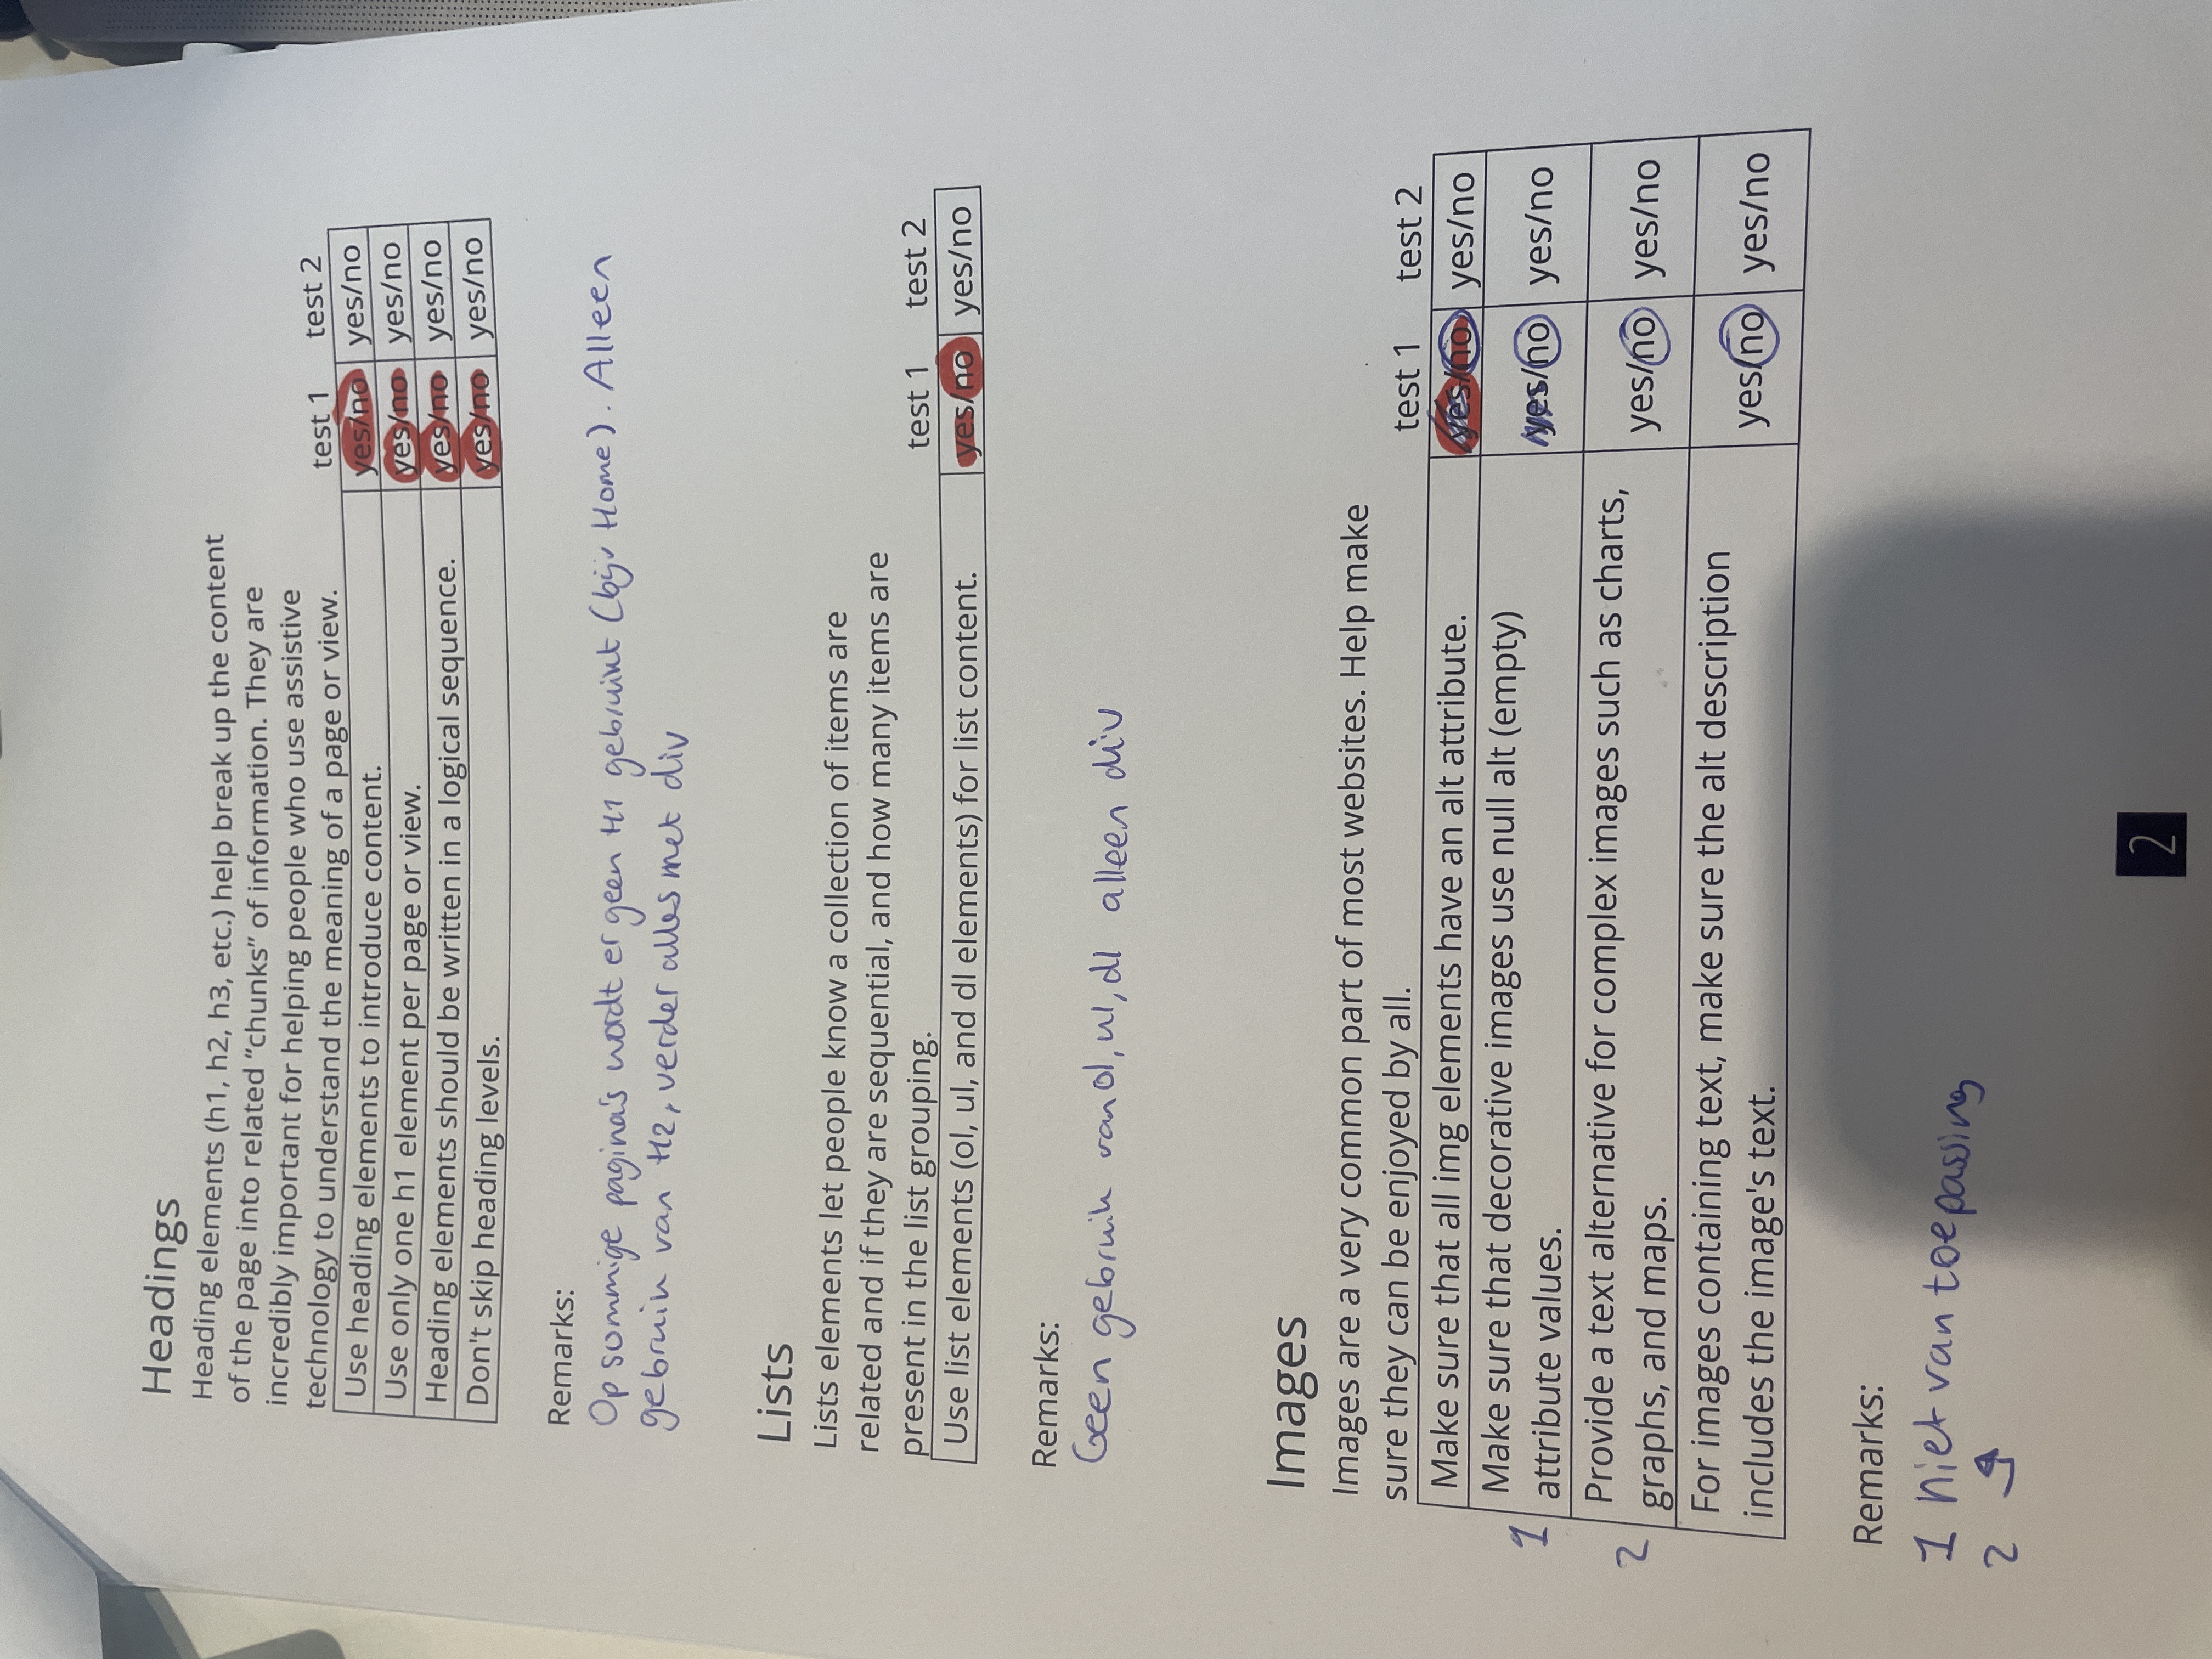 Headings
Heading elements (h1, h2, h3, etc.) help break up the content
of the page into related “chunks” of information. They are
incredibly important for helping people who use assistive
technology to understand the meaning of a page or view.
test 1 test 2
Use heading elements to introduce content. yes/no yes/no
Use only one h1 element per page or view. yes/no yes/no
Heading elements should be written in a logical sequence. yes/no yes/no
Don't skip heading levels. yes/no yes/no
Remarks:
Op sommige pagina's wordt er geen H1 gebruikt (bijv Home). Alleen
gebruik van H2, verder alles met div
Lists
Lists elements let people know a collection of items are
related and if they are sequential, and how many items are
present in the list grouping.
test 1 test 2
Use list elements (ol, ul, and dl elements) for list content. yes/no yes/no
Remarks:
Geen gebruik van ol, ul, dl alleen div
Images
Images are a very common part of most websites. Help make
sure they can be enjoyed by all.
test 1 test 2
Make sure that all img elements have an alt attribute. yes/no yes/no
1 Make sure that decorative images use null alt (empty)
attribute values. yes/no yes/no
2 Provide a text alternative for complex images such as charts,
graphs, and maps. yes/no yes/no
For images containing text, make sure the alt description
includes the image's text. yes/no yes/no
Remarks:
1 niet van toepassing
2
2